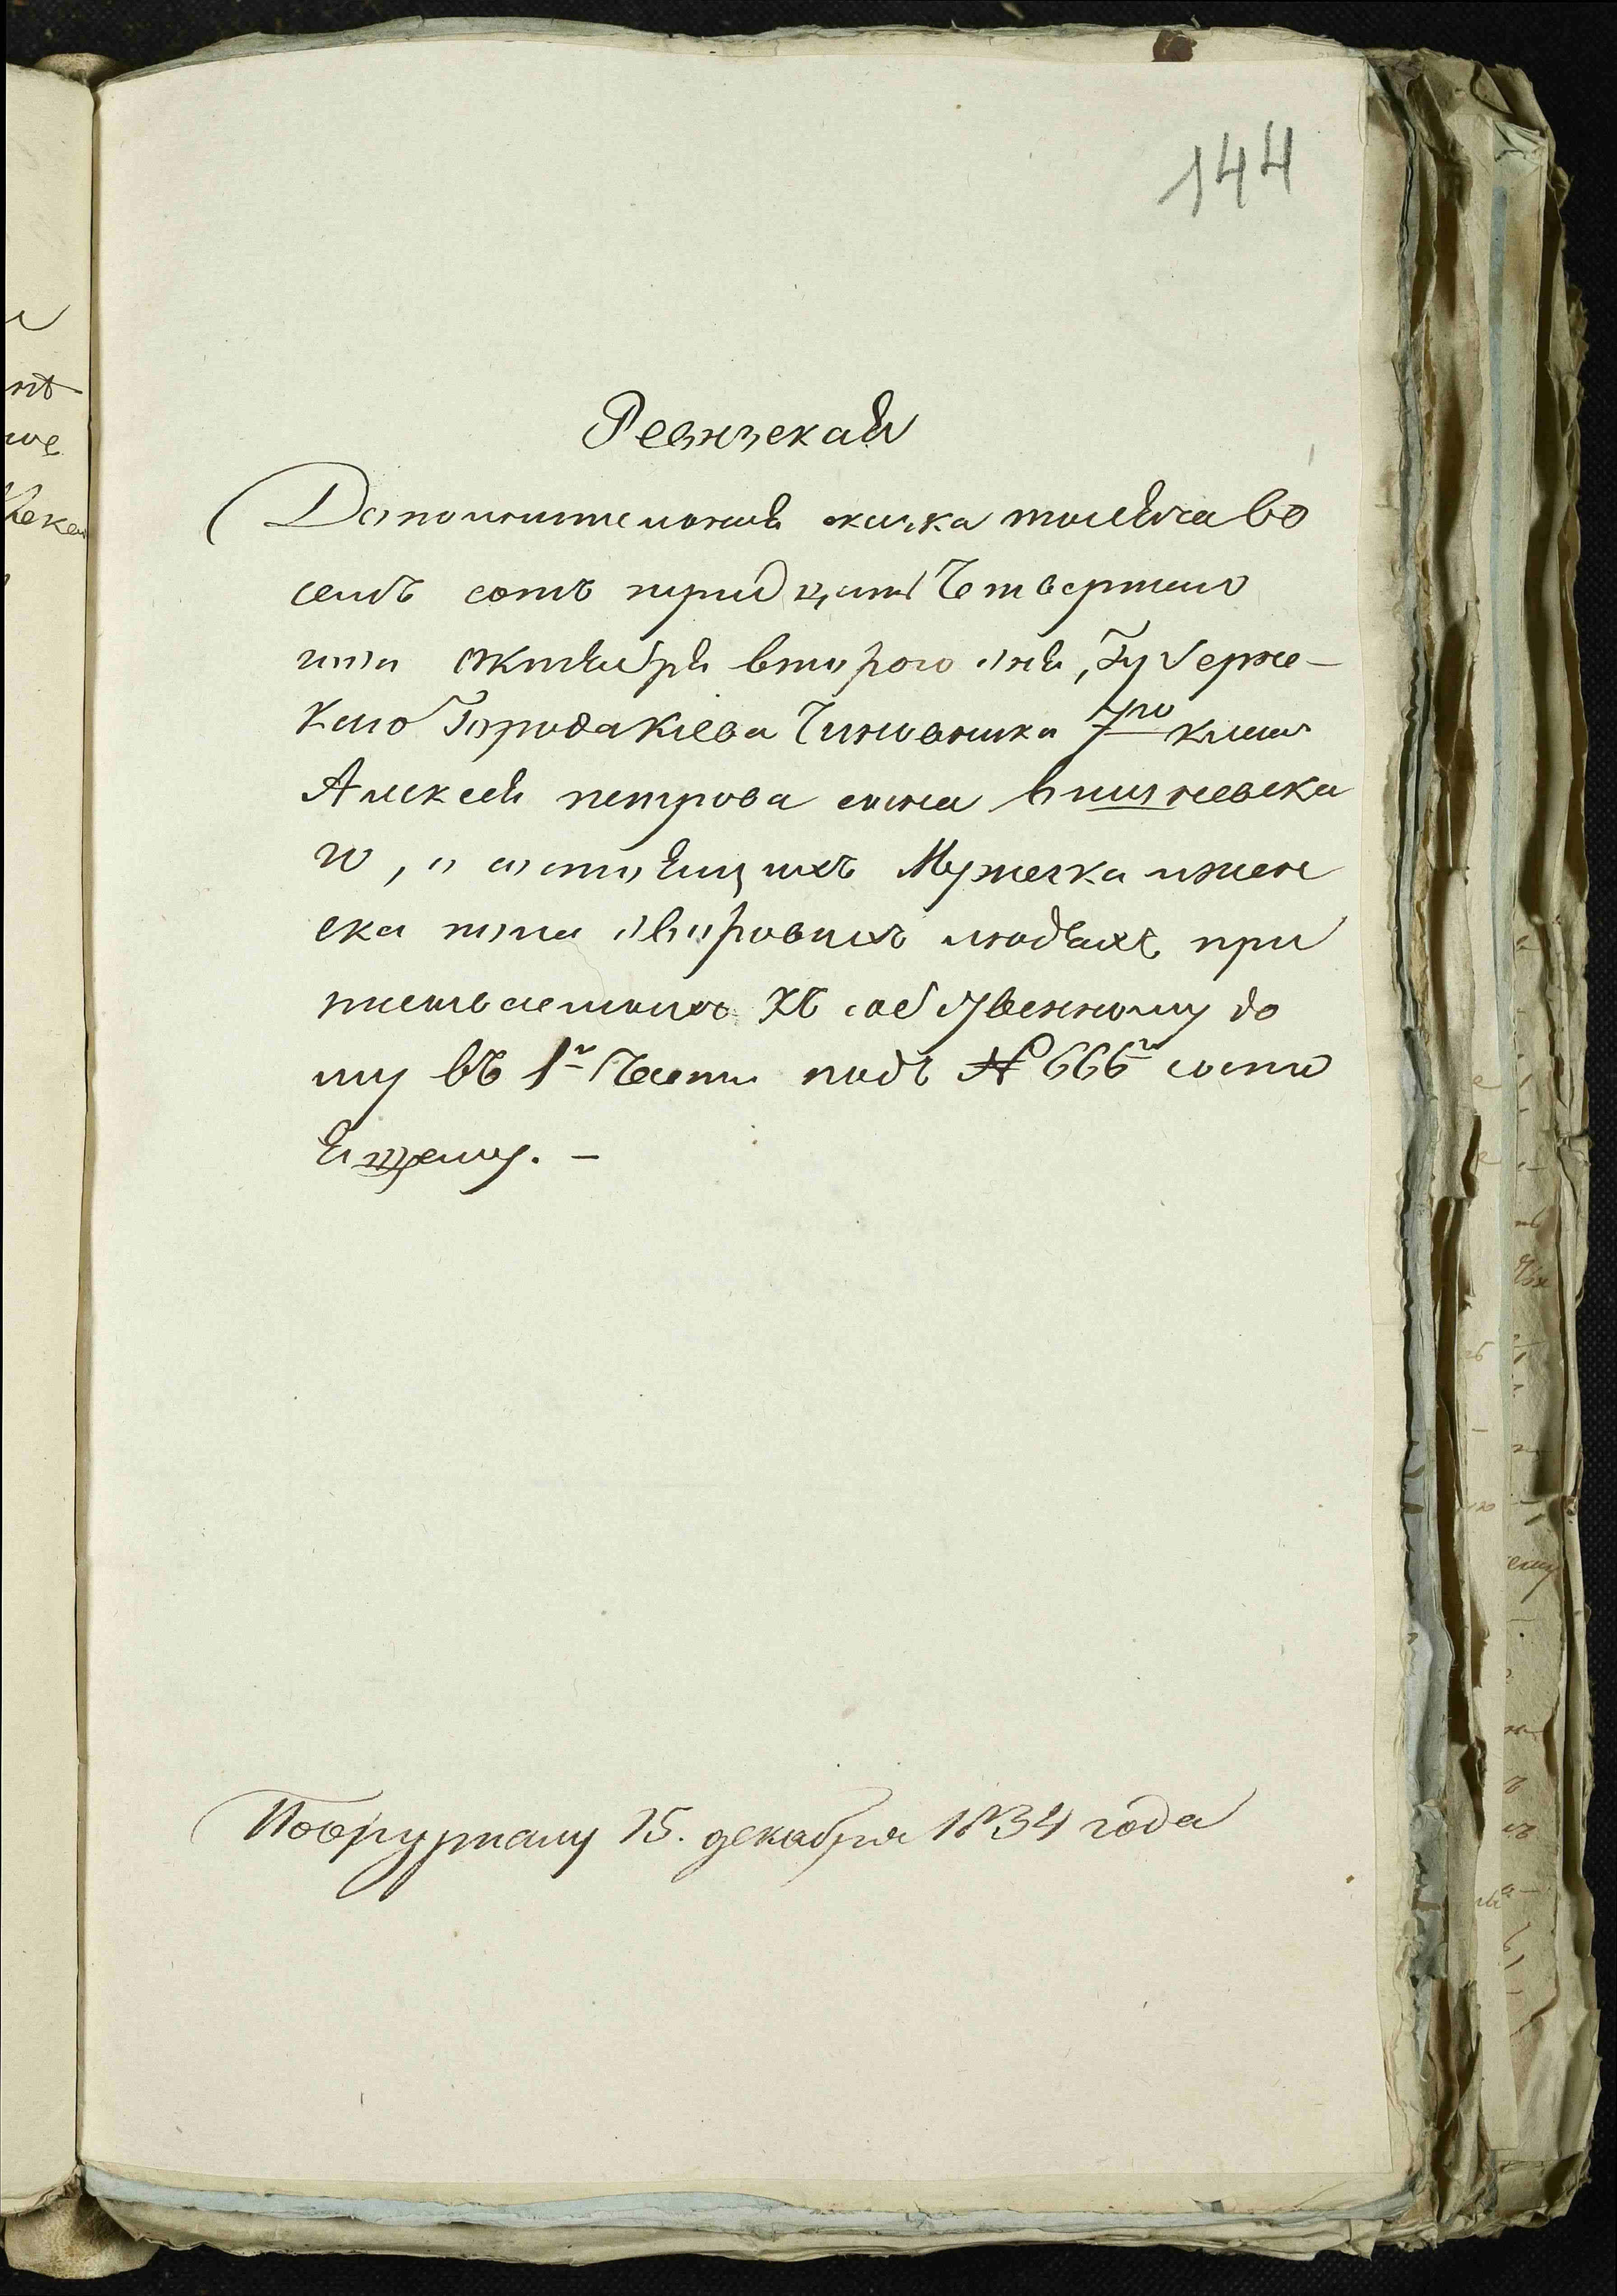 144
Ревизская
Дополнителная скаска тысяча во
семъ сотъ тридцать Четвертаго
года Октября втораго дня, Губернс-
каго Города Киева Чиновника 7го класа
Алексея петрова сына вишневска
го, о состоящихъ Мужеска и жен
ска пола дворовыхъ людяхъ при
писываемыхъ къ собственному до
му въ 1й Части подъ № 666м состо
ящему. –
По Журналу 15. декабря 1834 года